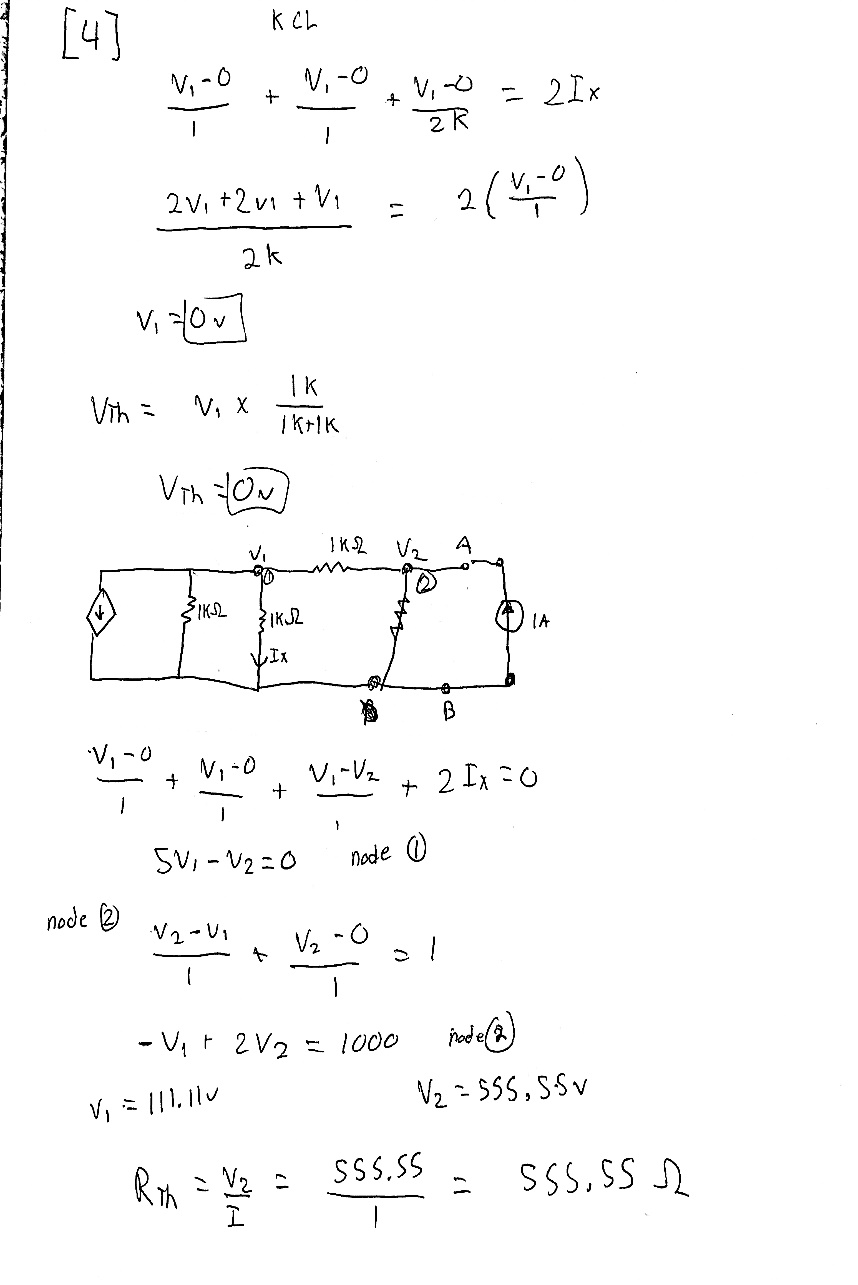 [4] KCL
V₁-0/1 + V₁-0/1 + V₁-0/2K = 2Ix
2V₁+2V₁+V₁/2k = 2(V₁-0/1)
V₁ = 0v
VTh = V₁ x 1K/1K+1K
VTh = 0v
V₁ 1KΩ V₂ A
① ②
1KΩ 1KΩ 1A
Ix
B
V₁-0/1 + V₁-0/1 + V₁-V₂/1 + 2Ix = 0
5V₁-V₂=0 node ①
node ② V₂-V₁/1 + V₂-0/1 = 1
-V₁ + 2V₂ = 1000 node ②
V₁ = 111.11v V₂ = 555.55v
RTh = V₂/I = 555.55/1 = 555.55 Ω